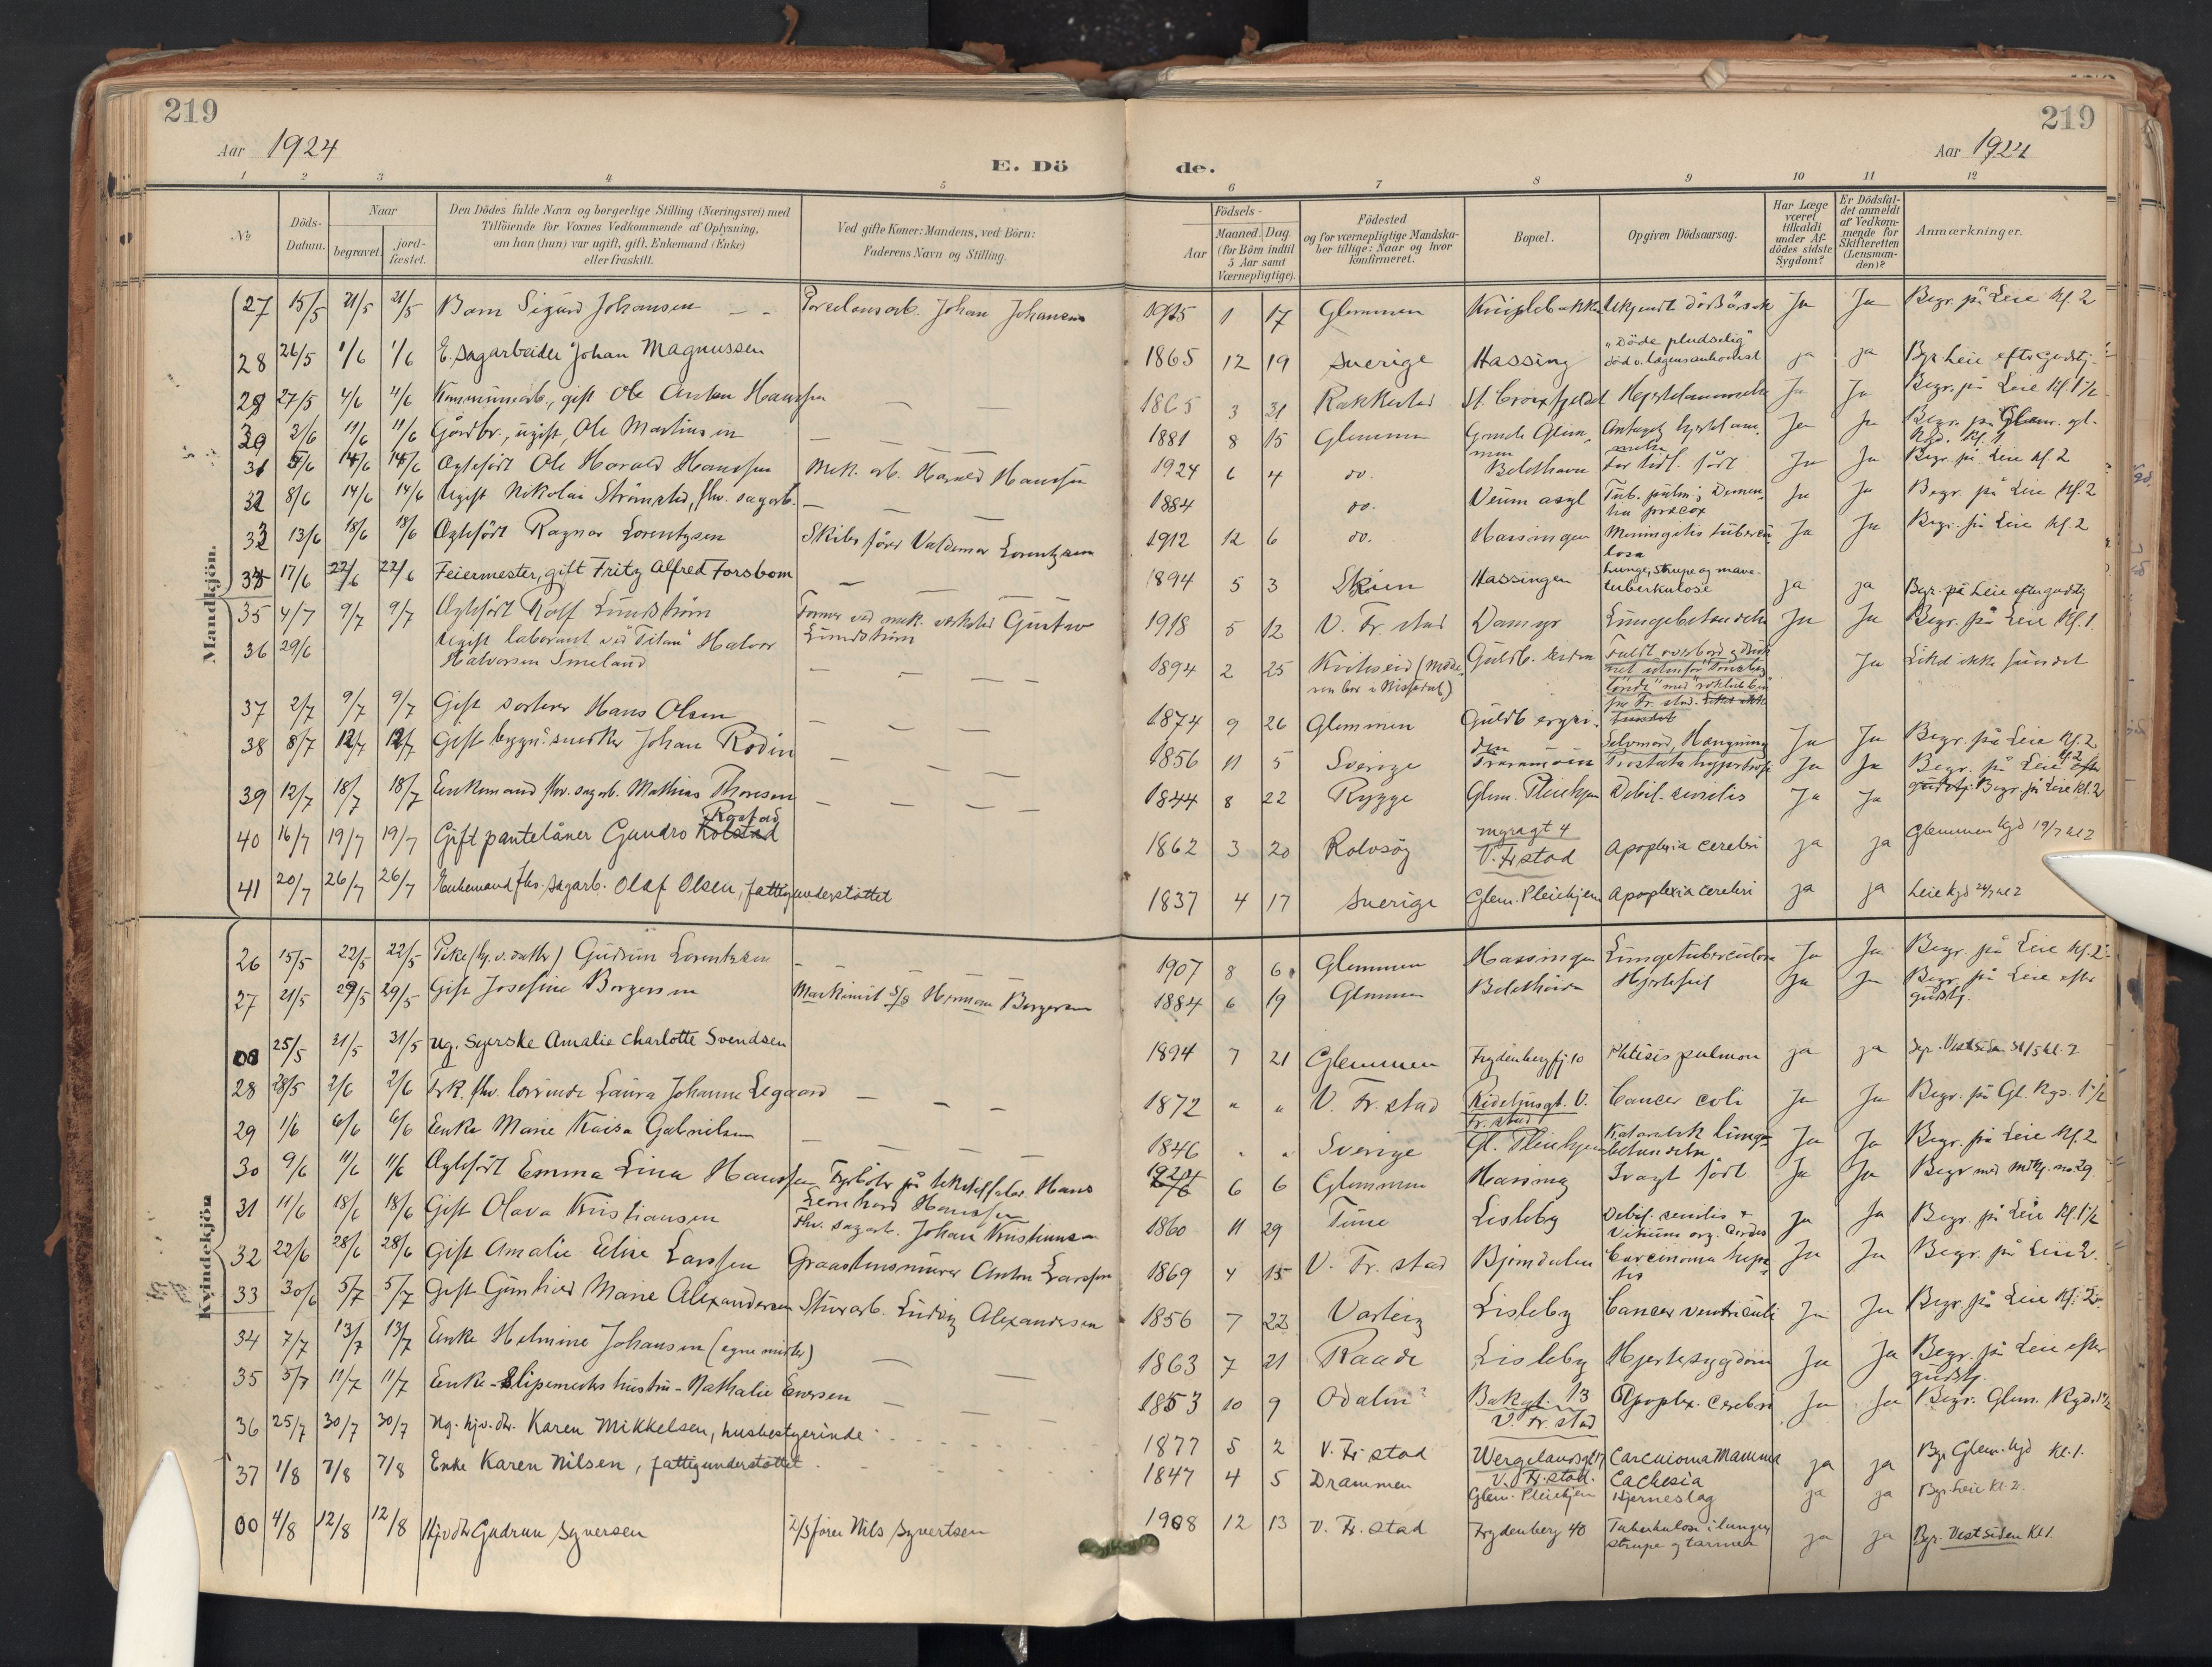 219
219
Aar 1924
E. Dö
de.
Aar 1924
1 2 3 4 5 6 7 8 9 10 11 12
No
Döds-
Datum.
Naar
begravet.
jord-
fæstet.
Den Dödes fulde Navn og borgerlige Stilling (Næringsvei) med
Tilföiende for Voxnes Vedkommende af Oplysning,
om han (hun) var ugift, gift, Enkemand (Enke)
eller fraskilt.
Ved gifte Koner: Mandens, ved Börn:
Faderens Navn og Stilling.
Födsels-
Aar
Maaned.
Dag.
(for Börn indtil
5 Aar samt
Værnepligtige).
Födested
og for værnepligtige Mandska-
ber tillige: Naar og hvor
konfirmeret.
Bopæl.
Opgiven Dödsaarsag.
Har Læge
været
tilkaldt
under Af-
dödes sidste
Sygdom?
Er Dödsfal-
det anmeldt
af Vedkom-
mende for
Skifteretten
(Lensman-
den)?
Anmærkninger.
Mandkjön.
27 15/5 21/5 21/5 Barn Sigurd Johansen Porcelænsarb. Johan Johansen 1 17 Glemmen Ukjendt dödsårsak Ja Ja Begr. på Leie kl. 2
28 26/5 1/6 1/6 E. sagarbeider Johan Magnussen 1865 12 19 Sverige Hassing "Döde pludselig" ja ja Bgr. Leie efter gudstj.
29 27/5 4/6 4/6 Kommunearb., gift Ole Anton Hanssen 1865 3 31 Rakkestad St. Croixfjeldet Hjertelammelse Ja Ja Begr. på Leie kl. 1½
30 3/6 11/6 11/6 Gårdbr., ugift, Ole Martinsen 1881 8 15 Glemmen Antagel. hjertelam- Ja Ja Begr. på Glem. gl.
melse Kgd. kl. 1
31 5/6 14/6 14/6 Ægtefödt Ole Harald Hanssen Mek. arb. Harald Hanssen 1924 6 4 do. For tidl. födt Ja Ja Begr. på Leie kl. 2
32 8/6 14/6 14/6 Ugift Nikolai Strömstad, fhv. sagarb. 1884 do. Veum asyl Tub. pulm.; Demen- Ja Ja Begr. på Leie kl. 2
tia præcox
33 13/6 18/6 18/6 Ægtefödt Ragnar Lorentzen Skibsförer Valdemar Lorentzen 1912 12 6 do. Hassingen Meningitis tubercu- Ja Ja Begr. på Leie kl. 2
losa
34 17/6 22/6 22/6 Feiermester, gift Fritz Alfred Forsbom 1894 5 3 Skien Hassingen Lunge, strupe og mave- ja ja Begr. på Leie efter gudstj
tuberkulose
35 4/7 9/7 9/7 Ægtefödt Rolf Lundström Former ved mek. verksted Gustav 1918 5 12 V. Fr. stad Damgr Lungebetændelse Ja Ja Begr. på Leie kl. 1.
Lundström
36 29/6 Ugift laborant ved "Titan" Halvor 1894 2 25 Kviteseid Faldt overbord og druk- Ja Liket ikke fundet
Halvorsen Smeland net
fra Fr. stad. Liket ikke
fundet
37 2/7 9/7 9/7 Gift sorterer Hans Olsen 1874 9 26 Glemmen Selvmord, Hængning Ja Ja Begr. på Leie kl. 2
38 8/7 12/7 12/7 Gift bygn. snedker Johan Rodin 1856 11 5 Sverige Prostata hypertrofi Ja Ja Begr. på Leie kl. 2 efter
gudstj.
39 12/7 18/7 18/7 Enkemand fhv. sagarb. Mathias Thoresen 1844 8 22 Rygge Glem. Pleiehjem Debil. senilis Ja Ja Begr. på Leie kl. 2
40 16/7 19/7 19/7 Gift pantelåner Gundro Kolstad 1862 3 20 Rolvsöy Myragt 4 Apoplexia cerebri ja ja Glemmen kgd 19/7 kl 2
V. Fr stad
41 20/7 26/7 26/7 Enkemand fhv. sagarb. Olaf Olsen, fattigunderstöttet 1837 4 17 Sverige Glem. Pleiehjem Apoplexia cerebri ja ja Leie kgd 26/7 kl 2
Kvindekjön
26 15/5 22/5 22/5 Pike (hj. v. datter) Gudrun Lorentzen 1907 8 6 Glemmen Hassingen Lungetuberculose Ja Ja Begr. på Leie kl. 2
27 21/5 29/5 29/5 Gift Josefine Borgersen Maskinist D/S Herman Borgersen 1884 6 19 Glemmen Hjertefeil Ja Ja Begr. på Leie efter
gudstj.
00 25/5 31/5 31/5 Ug. syerske Amalie Charlotte Svendsen 1894 7 21 Glemmen Frydenbergfj. 10 Phtisis pulmon ja ja Bgr. Vestsiden 31/5 kl. 2
28 28/5 2/6 2/6 Frk. fhv. lærerinde Laura Johanne Legaard 1872 " " V. Fr. stad Ridehusgt. V. Cancer coli Ja Ja Begr. på Gl. Kgd. 1½
Fr. stad
29 1/6 6/6 6/6 Enke Marie Kaisa Gabrielsen 1846 " " Sverige Gl. Pleiehjem Katarralsk lunge- Ja Ja Begr. på Leie kl. 2
betændelse
30 9/6 11/6 11/6 Ægtefödt Emma Lina Hanssen Fyrböter på Hans 1924 6 6 Glemmen Hassing Svagt födt Ja Ja Begr med mdkj. no 29.
Leonhard Hanssen
31 11/6 18/6 18/6 Gift Olava Kristiansen Fhv. sagarb. Johan Kristiansen 1860 11 29 Tune Lisleby Debil. senilis + Ja Ja Begr. på Leie kl. 1½
Vitium org. cordis
32 22/6 28/6 28/6 Gift Amalie Elise Larssen Graastensmurer Anton Larssen 1869 4 15 V. Fr. stad Bjørndalen Carcinoma hepa- Ja Ja Begr. på Leie 2.
tis
33 30/6 5/7 5/7 Gift Gunhild Marie Alexandersen Stuerarb. Ludvig Alexandersen 1856 7 22 Varteig Lisleby Cancer ventriculi Ja Ja Begr. på Leie kl. 2
34 7/7 13/7 13/7 Enke Helmine Johansen (egne midler) 1863 7 21 Raade Lisleby Hjertesygdom Ja Ja Begr. på Leie efter
gudstj.
35 5/7 11/7 11/7 Enke - Slipemesters hustru - Nathalie Enersen 1853 10 9 Odalen? Bakgt. 13 Apoplex. cerebri Ja Ja Begr. Glem. Kgd. 1½
V. Fr. stad
36 25/7 30/7 30/7 Ug. hjv. dtr. Karen Mikkelsen, husbestyrerinde 1877 5 2 V. Fr stad Wergelandsgt 17 Carcinoma Mamma ja ja Bgr Glem. kgd kl. 1.
V. Fr. stad. Cachexia
37 1/8 7/8 7/8 Enke Karen Nilsen, fattigunderstöttet 1847 4 5 Drammen Glem. Pleiehjem Hjerneslag ja ja Bgr. Leie kl. 2.
00 4/8 12/8 12/8 Hjv dtr Gudrun Syversen D/S förer Nils Syvertsen 1908 12 13 V. Fr. stad Frydenberg 40 Tuberkulose i lunger ja ja Bgr. Vestsiden kl 1.
strupe og tarmer